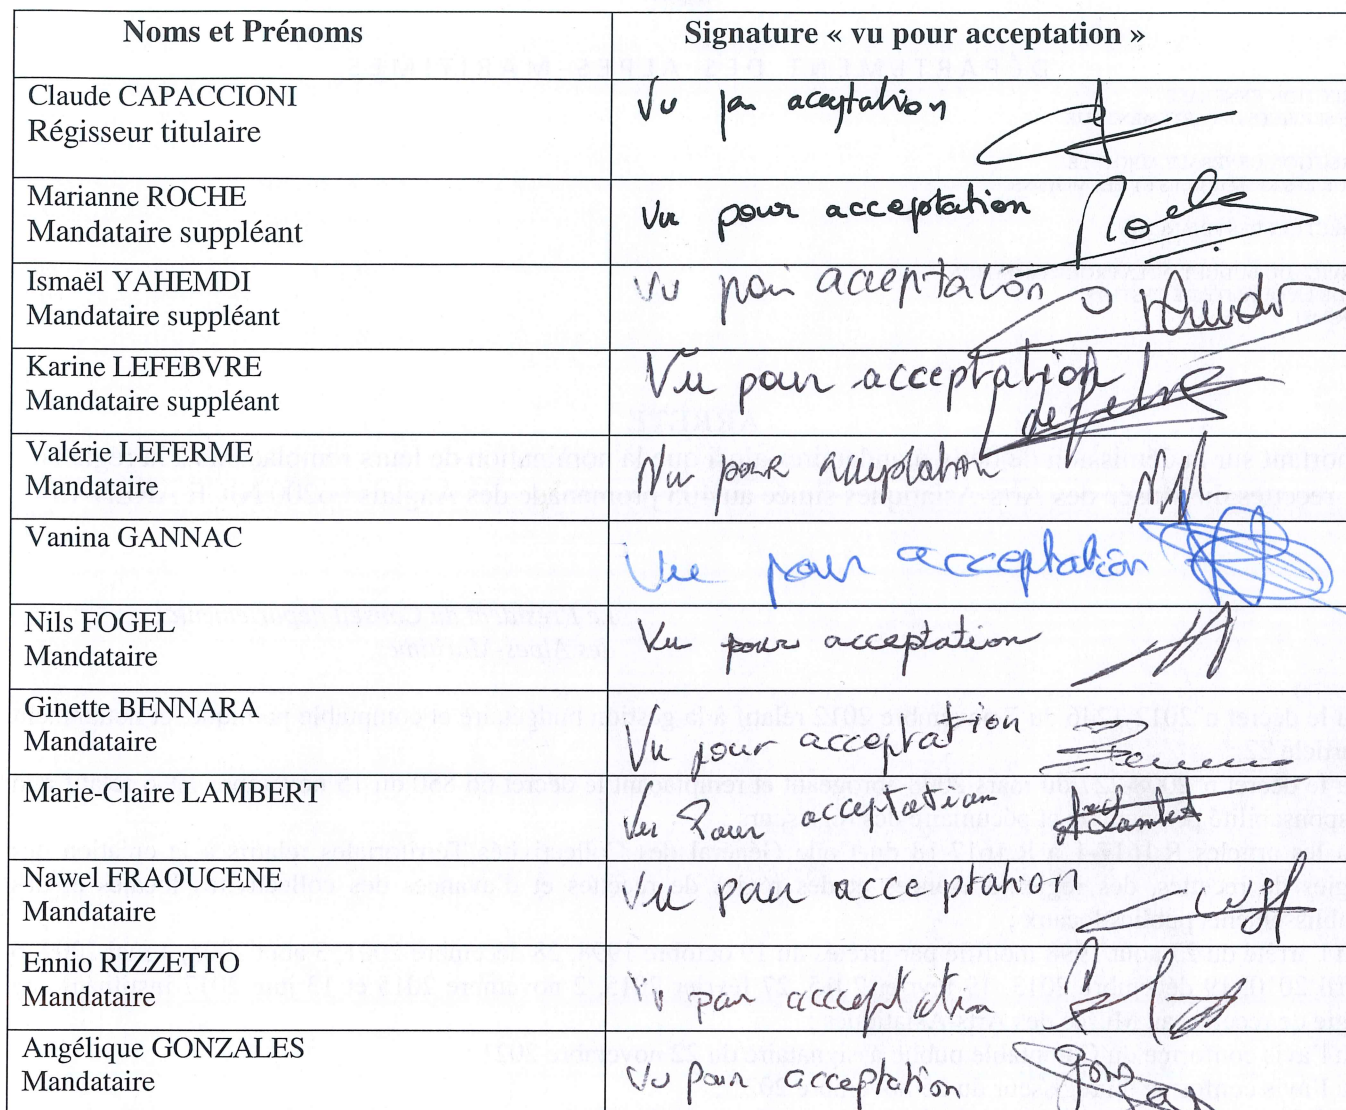 Noms et Prénoms
Signature « vu pour acceptation »
Claude CAPACCIONI
Régisseur titulaire
Vu pour acceptation
Marianne ROCHE
Mandataire suppléant
Vu pour acceptation Roche
Ismaël YAHEMDI
Mandataire suppléant
Vu pour acceptation
Karine LEFEBVRE
Mandataire suppléant
Vu pour acceptation
Lefebvre
Valérie LEFERME
Mandataire
Vu pour acceptation
Vanina GANNAC
Vue pour acceptation
Nils FOGEL
Mandataire
Vu pour acceptation
Ginette BENNARA
Mandataire
Vu pour acceptation
Marie-Claire LAMBERT
Vu Pour acceptation Lambert
Nawel FRAOUCENE
Mandataire
Vu pour acceptation
Ennio RIZZETTO
Mandataire
Vu pour acceptation
Angélique GONZALES
Mandataire
Vu pour acceptation Gonza